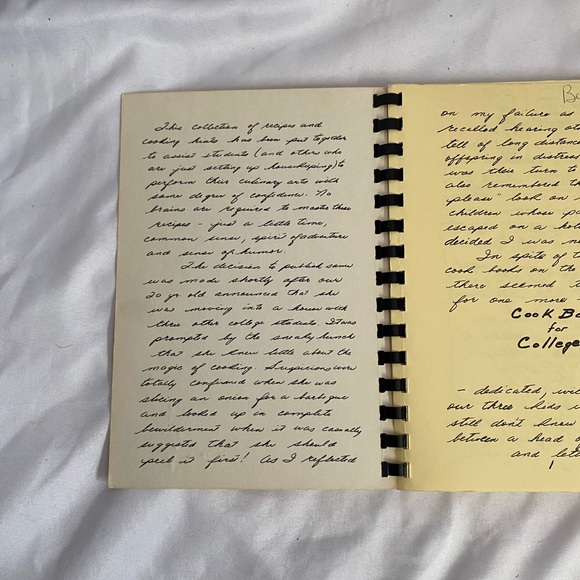 This collection of recipes and
cooking hints has been put together
to assist students (and others who
are just setting up housekeeping) to
perform their culinary arts with
some degree of confidence. No
brains are required to master these
recipes - just a little time,
common sense, spirit of adventure
and sense of humor.
The decision to publish same
was made shortly after our
20 yr old announced that she
was moving into a house with
three other college students. It was
prompted by the sneaky hunch
that she knew little about the
magic of cooking. Suspicions were
totally confirmed when she was
slicing an onion for a barbque
and looked up in complete
bewilderment when it was casually
suggested that she should
peel it first! As I reflected
Be
on my failure as
recalled hearing
tell of long distance
offspring in distress
was their turn to
also remembered th
please" look on
children whose p
escaped on a hol
decided I was n
In spite of t
cook books on th
there seemed t
for one more
COOK BO
for
College
- dedicated, wi
our three kids
still don't know
between a head o
and lett